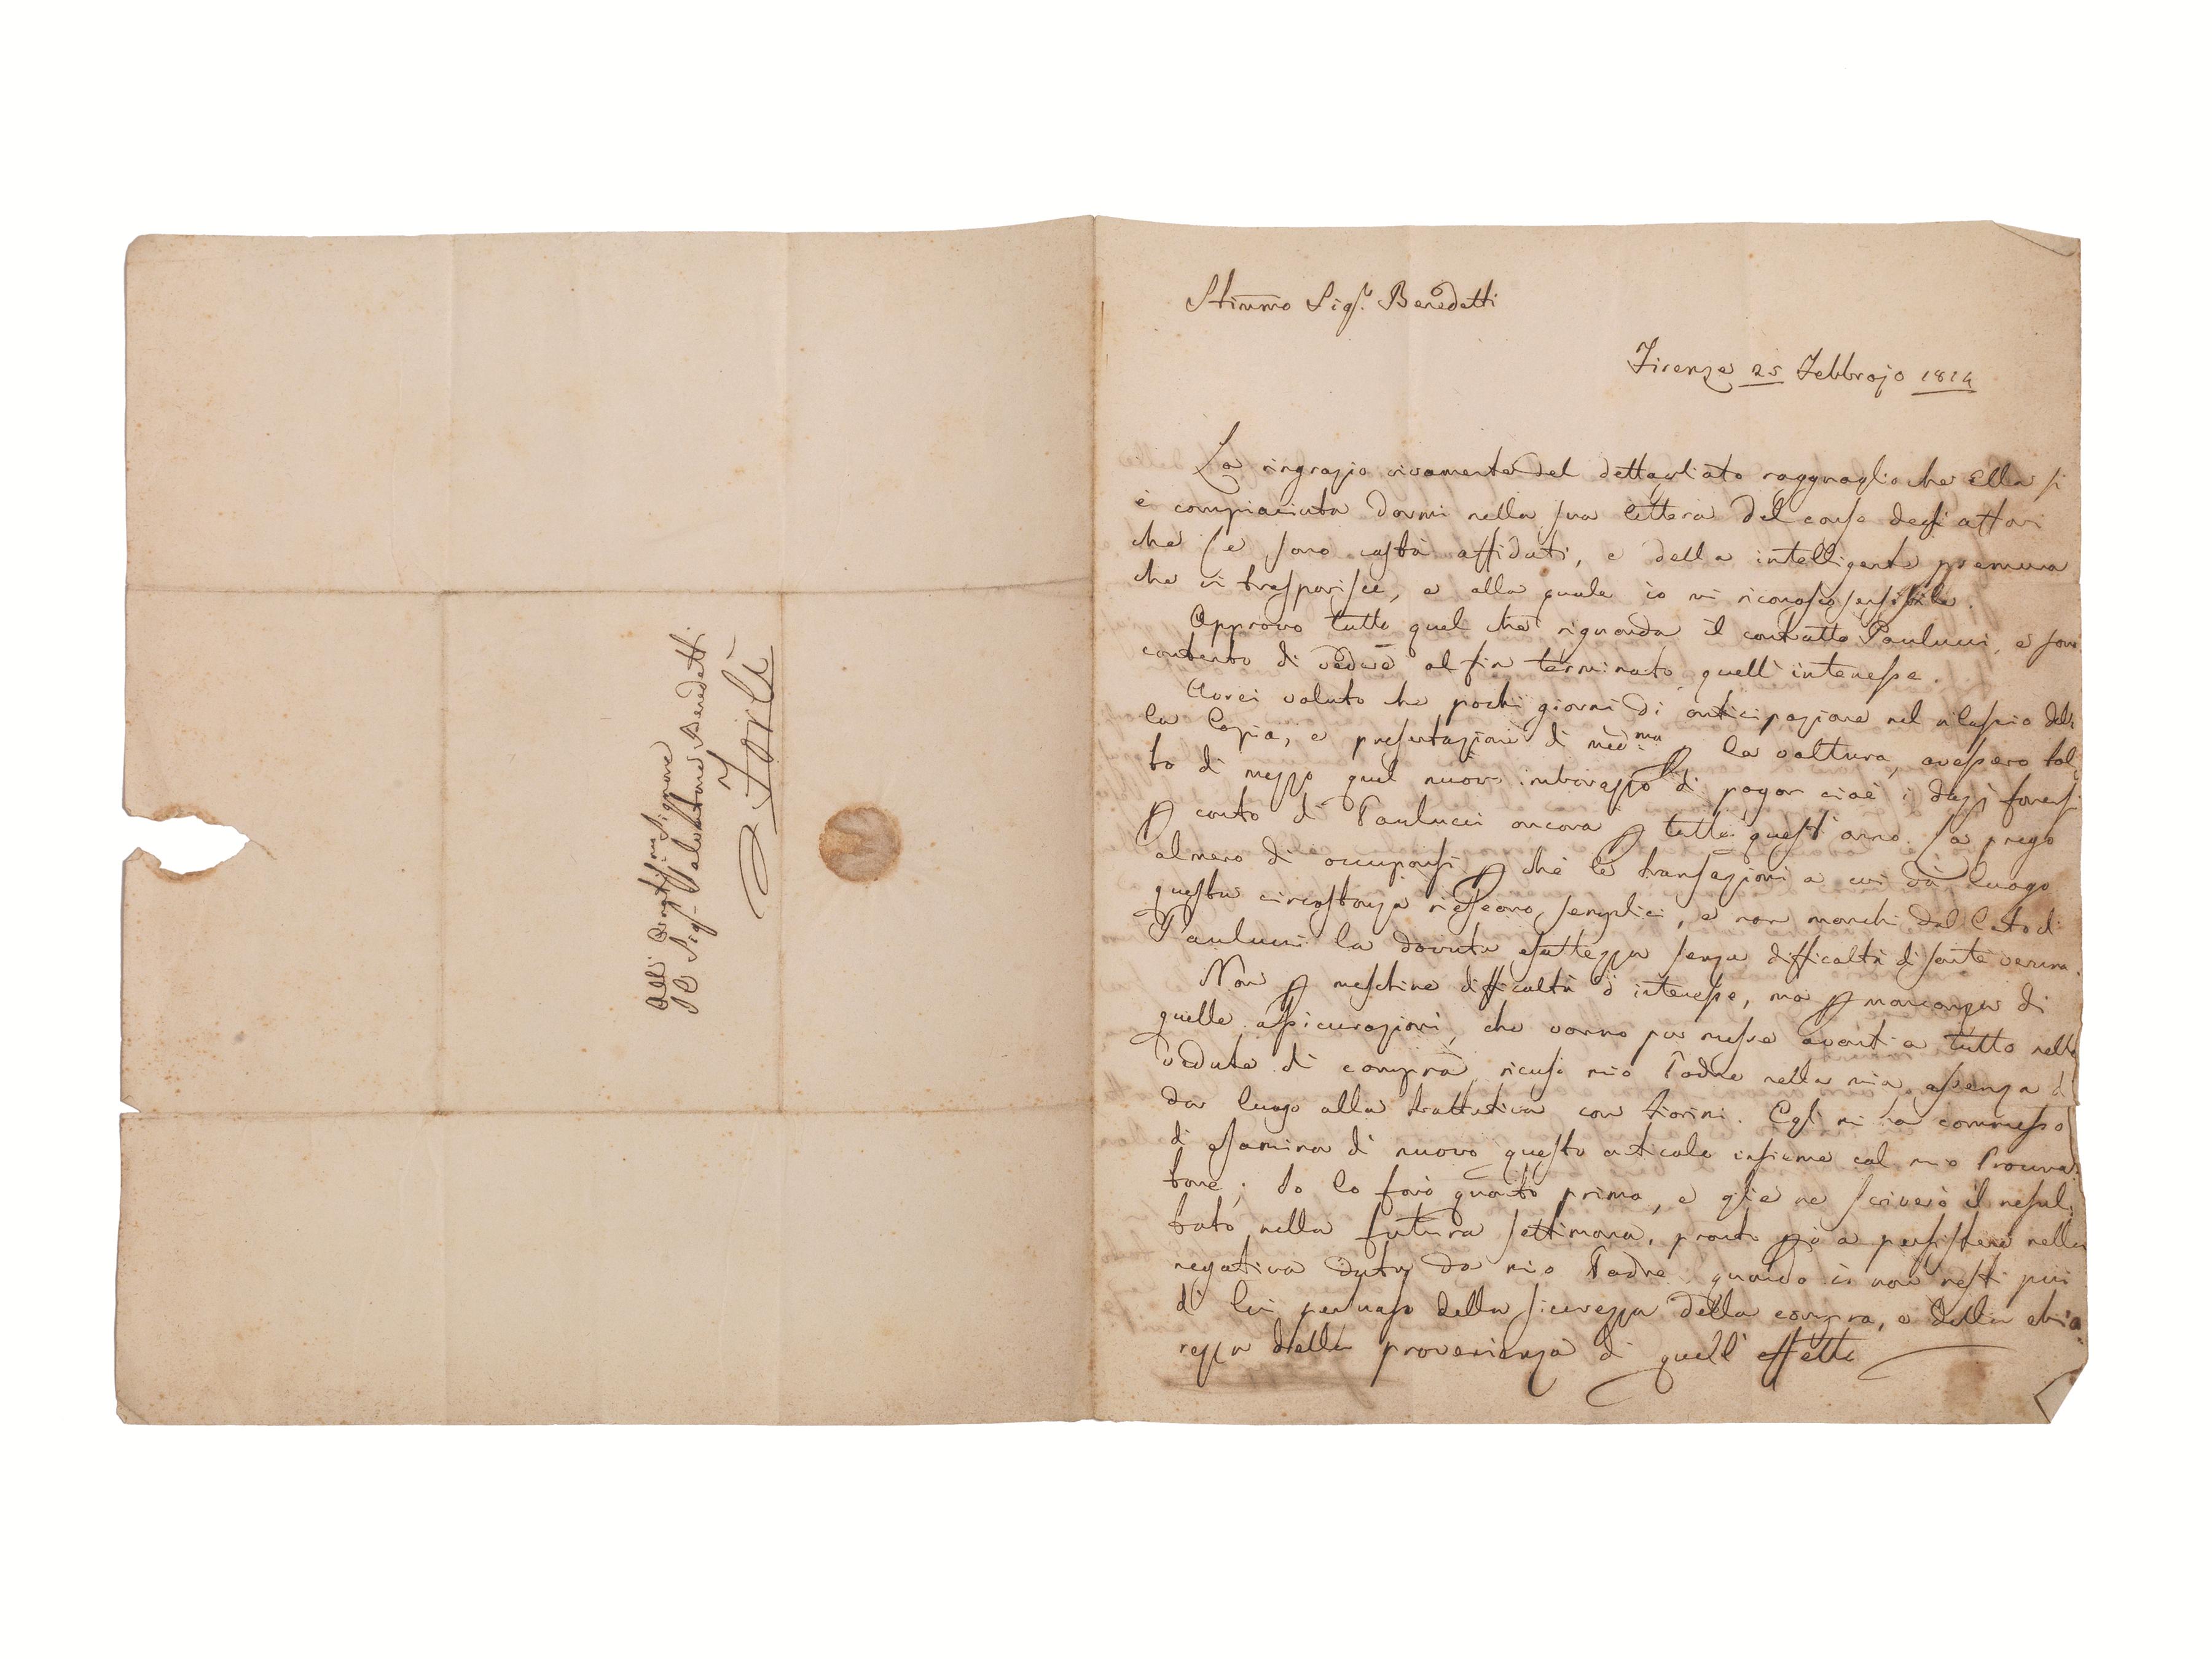 All' Ornatissmo Signore
Il Sigr Salvatore Benedetti
Forlì
Stimmo Sigr. Benedetti
Firenze 25 Febbrajo 1824
La ringrazio vivamente del dettagliato ragguaglio che Ella si
è compiaciuta darmi nella sua lettera del corso degli affari
che le sono costà affidati, e della intelligente premura
che vi trasparisce, e alla quale io mi riconosco sensibile.
Approvo tutto quel che riguarda il contratto Paulucci, e sono
contento di vedere al fin terminato quell' interesse.
Avrei voluto che pochi giorni di anticipazione nel rilascio del-
la Copia, e presentazione di medma p la voltura, avessero tol-
to di mezzo quel nuovo imbarazzo di pagar cioè i dazj forensi
p conto di Paulucci ancora p tutto quest' anno. La prego
almeno di occuparsi p chè le transazioni a cui dà luogo
questa circostanza riescano semplici, e non manchi dal lato di
Paulucci la dovuta esattezza senza difficoltà di sorte veruna.
Non p meschine difficoltà d' interesse, ma p mancanza di
quelle assicurazioni, che vanno pur messe avanti a tutto nelle
vedute di compra, ricusò mio Padre nella mia assenza di
dar luogo alla trattativa con Fiorini. Egli mi ha commesso
di esaminar di nuovo questo articolo insieme col mio Procura-
tore; Io lo farò quanto prima, e glie ne scriverò il resul-
tato nella futura settimana, pronto pò a persistere nella
negativa data da mio Padre quando io non resti più
di lui persuaso della sicurezza della compra, e della chia-
rezza della provenienza di quell' effetti